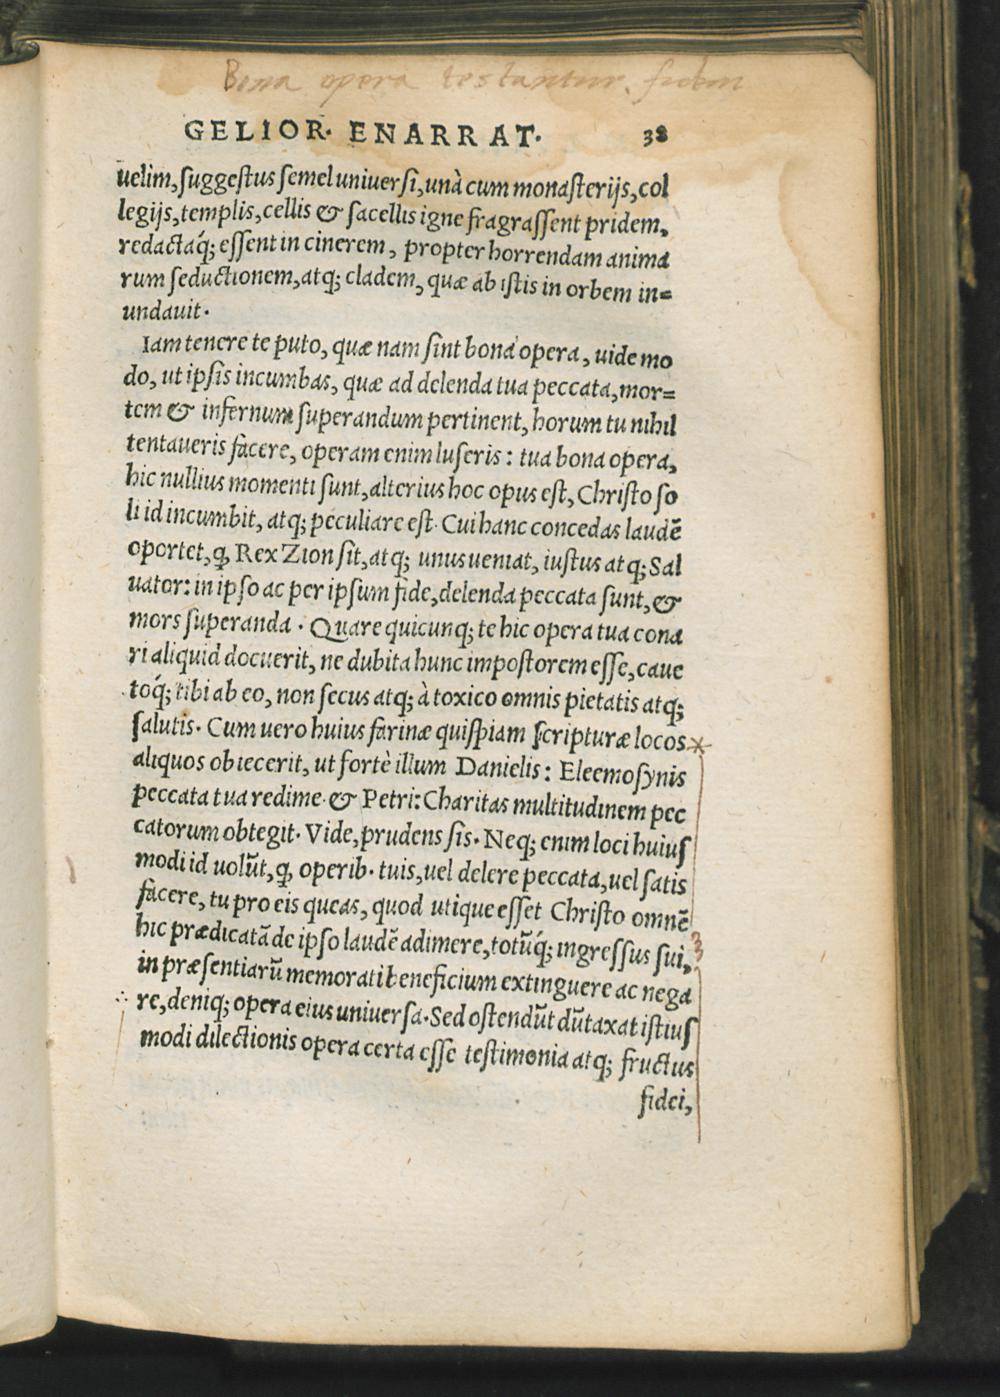 Bona opera testantur fidem
GELIOR· ENARRAT· 38
uelim, suggestus semel uniuersi, unà cum monasterijs, col
legijs, templis, cellis & sacellis igne fragrassent pridem,
redactaq́; essent in cinerem, propter horrendam anima
rum seductionem, atq; cladem, quæ ab istis in orbem in=
undauit·
Iam tenere te puto, quæ nam sint bona opera, uide mo
do, ut ipsis incumbas, quæ ad delenda tua peccata, mor=
tem & infernum superandum pertinent, horum tu nihil
tentaueris facere, operam enim luseris: tua bona opera,
hic nullius momenti sunt, alterius hoc opus est, Christo so
li id incumbit, atq; peculiare est· Cui hanc concedas laudē
oportet, ꝙ, Rex Zion sit, atq; unus ueniat, iustus atq; Sal
uator: in ipso ac per ipsum fide, delenda peccata sunt, &
mors superanda· Quare quicunq; te hic opera tua cona
ri aliquid docuerit, ne dubita hunc impostorem esse, caue
toq́; tibi ab eo, non secus atq; à toxico omnis pietatis atq;
salutis· Cum uero huius farinæ quispiam scripturæ locos
aliquos obiecerit, ut fortè illum Danielis: Eleemosynis
peccata tua redime· & Petri: Charitas multitudinem pec
catorum obtegit· Vide, prudens sis· Neq; enim loci huius
modi id uolūt, ꝙ, operib· tuis, uel delere peccata, uel satis
facere, tu pro eis queas, quod utique esset Christo omnē
hic prædicatā de ipso laudē adimere, totūq́; ingressus sui,
in præsentiarū memorati beneficium extinguere ac nega
re, deniq; opera eius uniuersa· Sed ostendūt dūtaxat istius
modi dilectionis opera certa esse testimonia atq; fructus
fidei,